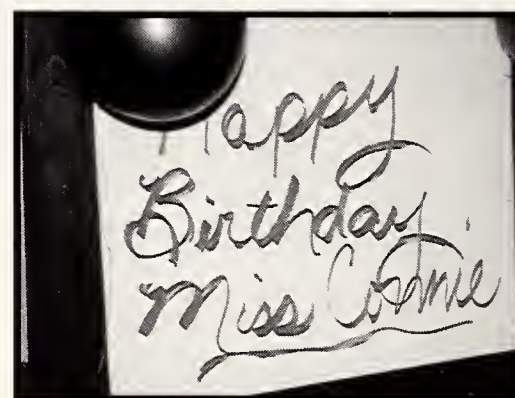 Happy
Birthday
Miss Connie